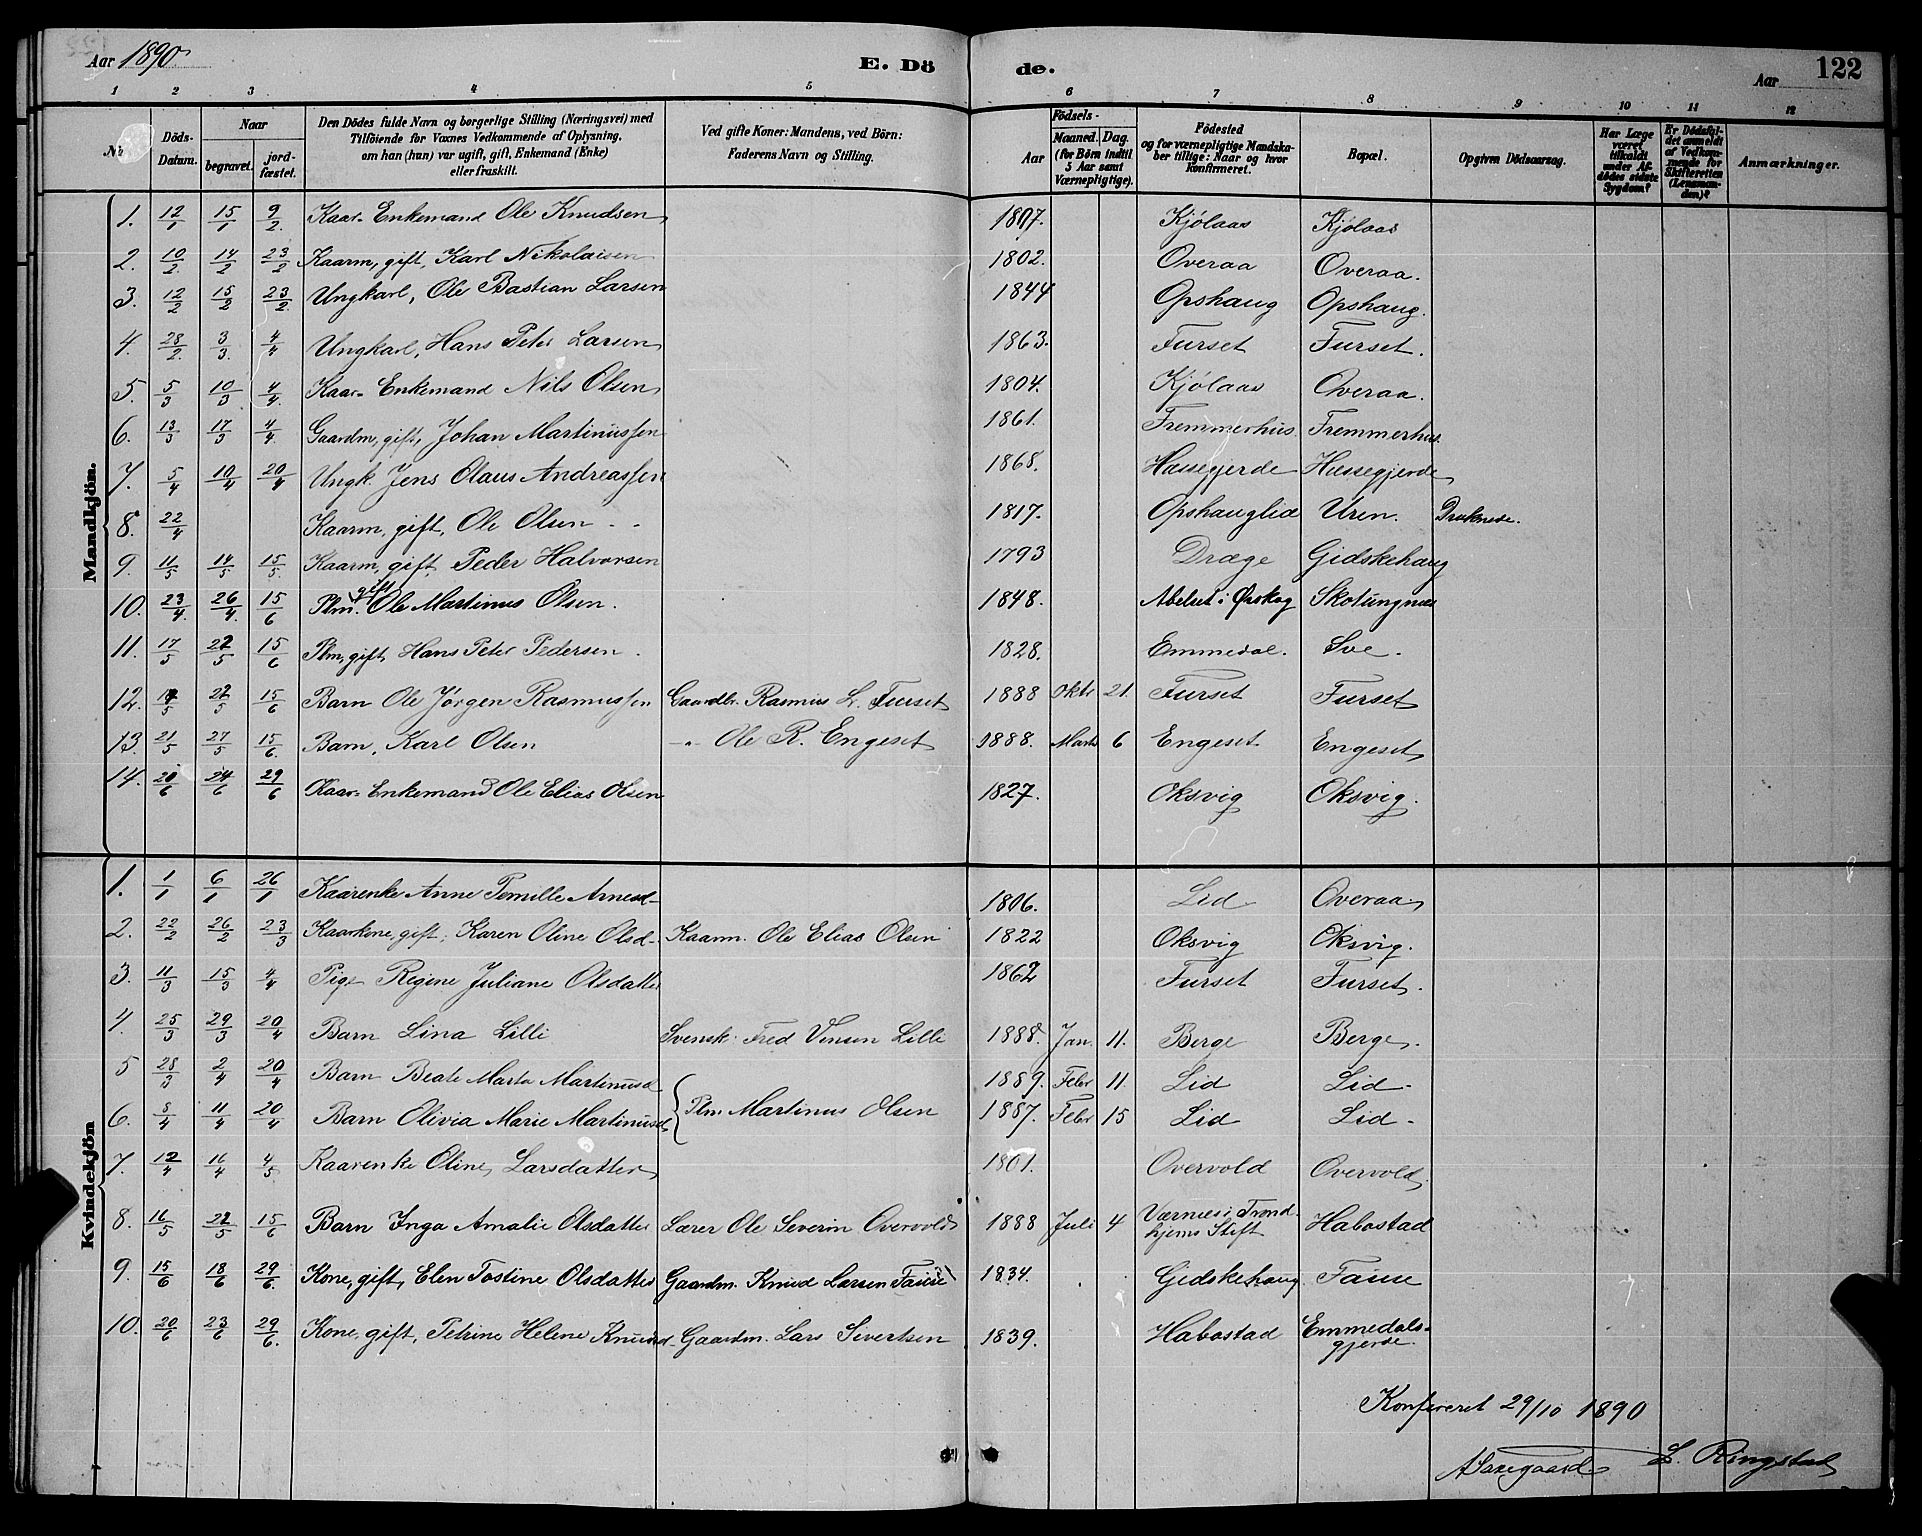 Aar 1890. E. Dö de. Aar 122
1 2 3 4 5 6 7 8 9 10 11 12
No. Döds-Datum. Naar begravet. jordfæstet. Den Dödes fulde Navn og borgerlige Stilling (Næringsvei) med Tilföiende for Voxnes Vedkommende af Oplysning, om han (hun) var ugift, gift, Enkemand (Enke) eller fraskilt. Ved gifte Koner: Mandens, ved Börn: Faderens Navn og Stilling. Födsels- Aar Maaned. Dag. (for Börn indtil 5 Aar samt Værnepligtige). Födested og for værnepligtige Mandskaber tillige: Naar og hvor konfirmeret. Bopæl. Opgiven Dödsaarsag. Har Læge været tilkaldt under Afdödes sidste Sygdom? Er Dödsfaldet anmeldt af Vedkommende for Skifteretten (Lensmanden)? Anmærkninger.
Mandkjön.
1. 12/1 15/1 9/2. Kaar- Enkemand Ole Knudsen 1807. Kjölaas Kjölaas
2. 10/2. 14/2 23/2 Kaarm, gift, Karl Nikolaisen 1802. Overaa Overaa.
3. 12/2 15/2 23/2. Ungkarl, Ole Bastian Larsen 1844 Opshaug Opshaug.
4. 28/2. 3/3. 4/4 Ungkarl, Hans Peter Larsen 1863. Furset Furset.
5. 5/3 10/3 4/4. Kaar- Enkemand Nils Olsen 1804. Kjölaas Overaa.
6. 13/3 17/3 4/4. Gaardm, gift, Johan Martinussen 1861. Fremmerhus Fremmerhus
7. 5/4 10/4 20/4 Ungk. Jens Olaus Andreassen 1868. Hassegjerde Hassegjerde
8. 22/4 Kaarm, gift, Ole Olsen - - 1817. Opshauglid Uren. Druknede.
9. 11/5 14/5 15/5. Kaarm, gift, Peder Halvorsen 1793 Dræge Gidskehaug
10. 23/4. 26/4. 15/6 Plm. gift Ole Martinus Olsen. 1848. Abelset i Ørskog Skotungnes
11. 17/5 22/5 15/6 Plm, gift, Hans Peter Pedersen. 1828. Emmedal. Sve.
12. 18/5 22/5 15/6 Barn Ole Jørgen Rasmussen Gaardbr. Rasmus L. Furset 1888 Oktr 21. Furset Furset
13. 21/5 27/5 15/6. Barn, Karl Olsen -"- Ole R. Engeset 1888. Marts 6 Engeset Engeset
14. 20/6 24/6 29/6 Kaar- Enkemand Ole Elias Olsen 1827. Oksvig Oksvig.
Kvindekjön
1. 1/1 6/1 26/1 Kaarenke Anne Pernille Arnesd- 1806. Lid Overaa
2. 22/2 26/2 23/3 Kaarkone, gift, Karen Oline Olsd- Kaarm. Ole Elias Olsen 1822 Oksvig Oksvig.
3. 11/3 15/3 4/4 Pige Regine Juliane Olsdatter 1862 Furset Furset.
4. 25/3 29/3 20/4 Barn Lina Lilli Svensk. Fred Vensen Lilli 1888. Jan. 11. Berge Berge.
5 28/3 2/4 20/4 Barn Beate Marta Martinusd 1889. Febr 11. Lid Lid.
{ Plm Martinus Olsen
6. 8/4 11/4 20/4 Barn Olivia Marie Martinusd 1887. Febr 15 Lid Lid.
7. 12/4 16/4 4/5 Kaarenke Oline Larsdatter 1801. Overvold Overvold
8. 16/5 22/5 15/6 Barn Inga Amalie Olsdatter Lærer Ole Severin Overvold 1888 Juli 4 Værnes i Trondhjems Stift Habostad
9. 15/6 18/6 29/6. Kone, gift, Elen Tostine Olsdatter Gaardm. Knud Larsen Fause 1834. Gidskehaug Fause
10. 20/6 23/6 29/6. Kone, gift, Petrine Helene Knudsd- Gaardm. Lars Sivertsen 1839. Habostad Emmedalsgjerde.
Konfereret 29/10 1890
A Saxegaard L. Ringstad